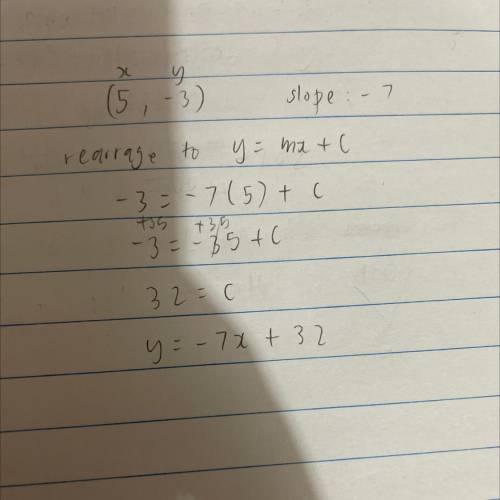 x y
(5, -3) slope: -7
rearrage to y = mx + c
-3 = -7(5) + c
+35 +35
-3 = -35 + c
32 = c
y = -7x + 32